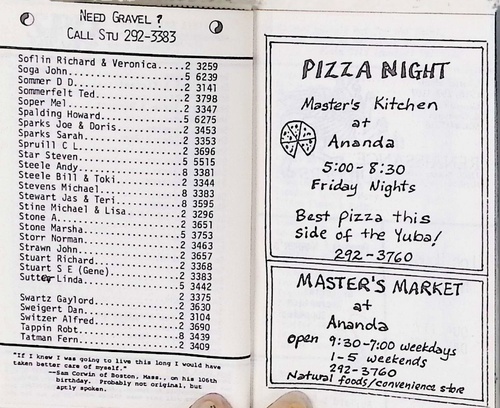 NEED GRAVEL ?
CALL STU 292-3383
Soflin Richard & Veronica.....2 3259
Soga John.....5 6239
Sommer D D.....2 3141
Sommerfelt Ted.....2 3798
Soper Mel.....2 3347
Spalding Howard.....5 6275
Sparks Joe & Doris.....2 3453
Sparks Sarah.....2 3353
Spruill C L.....2 3696
Star Steven.....5 5515
Steele Andy.....8 3381
Steele Bill & Toki.....2 3344
Stevens Michael.....8 3383
Stewart Jas & Teri.....8 3595
Stine Michael & Lisa.....2 3296
Stone A.....2 3651
Stone Marsha.....5 3753
Storr Norman.....2 3463
Strawn John.....2 3657
Stuart Richard.....2 3368
Stuart S E (Gene).....2 3383
Sutter Linda.....5 3442
.....2 3375
Swartz Gaylord.....2 3630
Sweigert Dan.....2 3104
Switzer Alfred.....2 3690
Tappin Robt.....8 3439
Tatman Fern.....2 3409
"If I knew I was going to live this long I would have
taken better care of myself."
--Sam Corwin of Boston, Mass., on his 106th
birthday. Probably not original, but
aptly spoken.
PIZZA NIGHT
Master's Kitchen
at
Ananda
5:00 - 8:30
Friday Nights
Best pizza this
side of the Yuba!
292-3760
MASTER'S MARKET
at
Ananda
open 9:30-7:00 weekdays
1-5 weekends
292-3760
Natural foods/convenience store